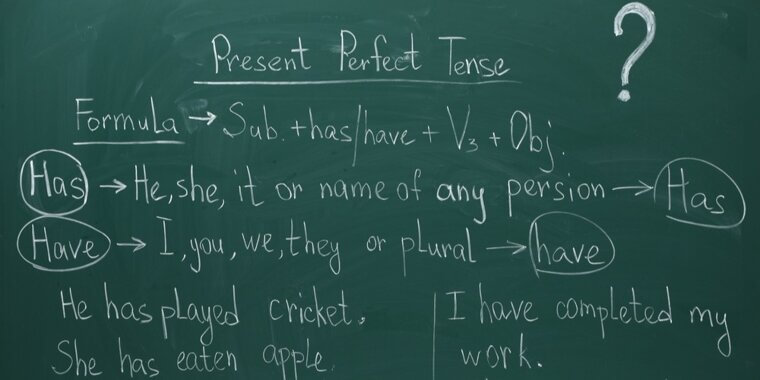 Present Perfect Tense
?
Formula → Sub. + has/have + V₃ + Obj.
Has → He, she, it or name of any persion → Has
Have → I, you, we, they or plural → have
He has played cricket.
She has eaten apple.
I have completed my
work.